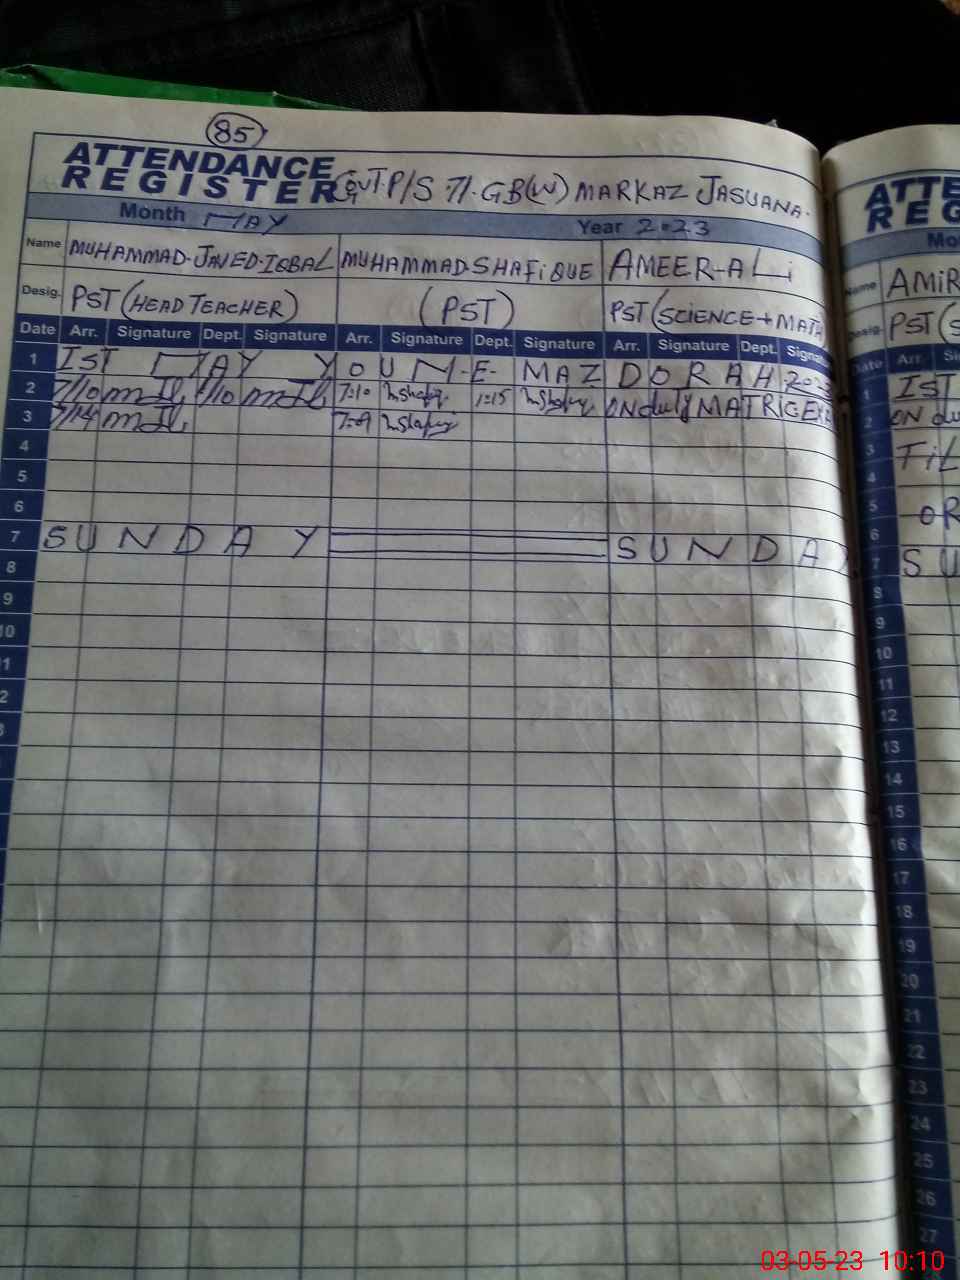 85
ATTENDANCE
REGISTER GOVT. P/S 71. GB(W) MARKAZ JASUANA.
Month MAY Year 2023
Name MUHAMMAD JAVED IQBAL MUHAMMAD SHAFIQUE AMEER ALi
Desig. PST (HEAD TEACHER) (PST) PST (SCIENCE + MATH
Date Arr. Signature Dept. Signature Arr. Signature Dept. Signature Arr. Signature Dept. Signat
1 IST MAY YOUM-E- MAZDORAH 2023
2 7/10 1/10 7:10 1:15 ON duty MATRIC EXA
3 7/14 7:09
4
5
6
7 SUNDAY SUNDAY
8
9
10
11
12
ATTE
REG
Mo
Name AMIR
Desig. PST (S
Date Arr. Si
1 IST
2 ON du
3 TiL
4
5 OR
6
7 SU
8
9
10
11
12
13
14
15
16
17
18
19
20
21
22
23
24
25
26
27
03-05-23 10:10